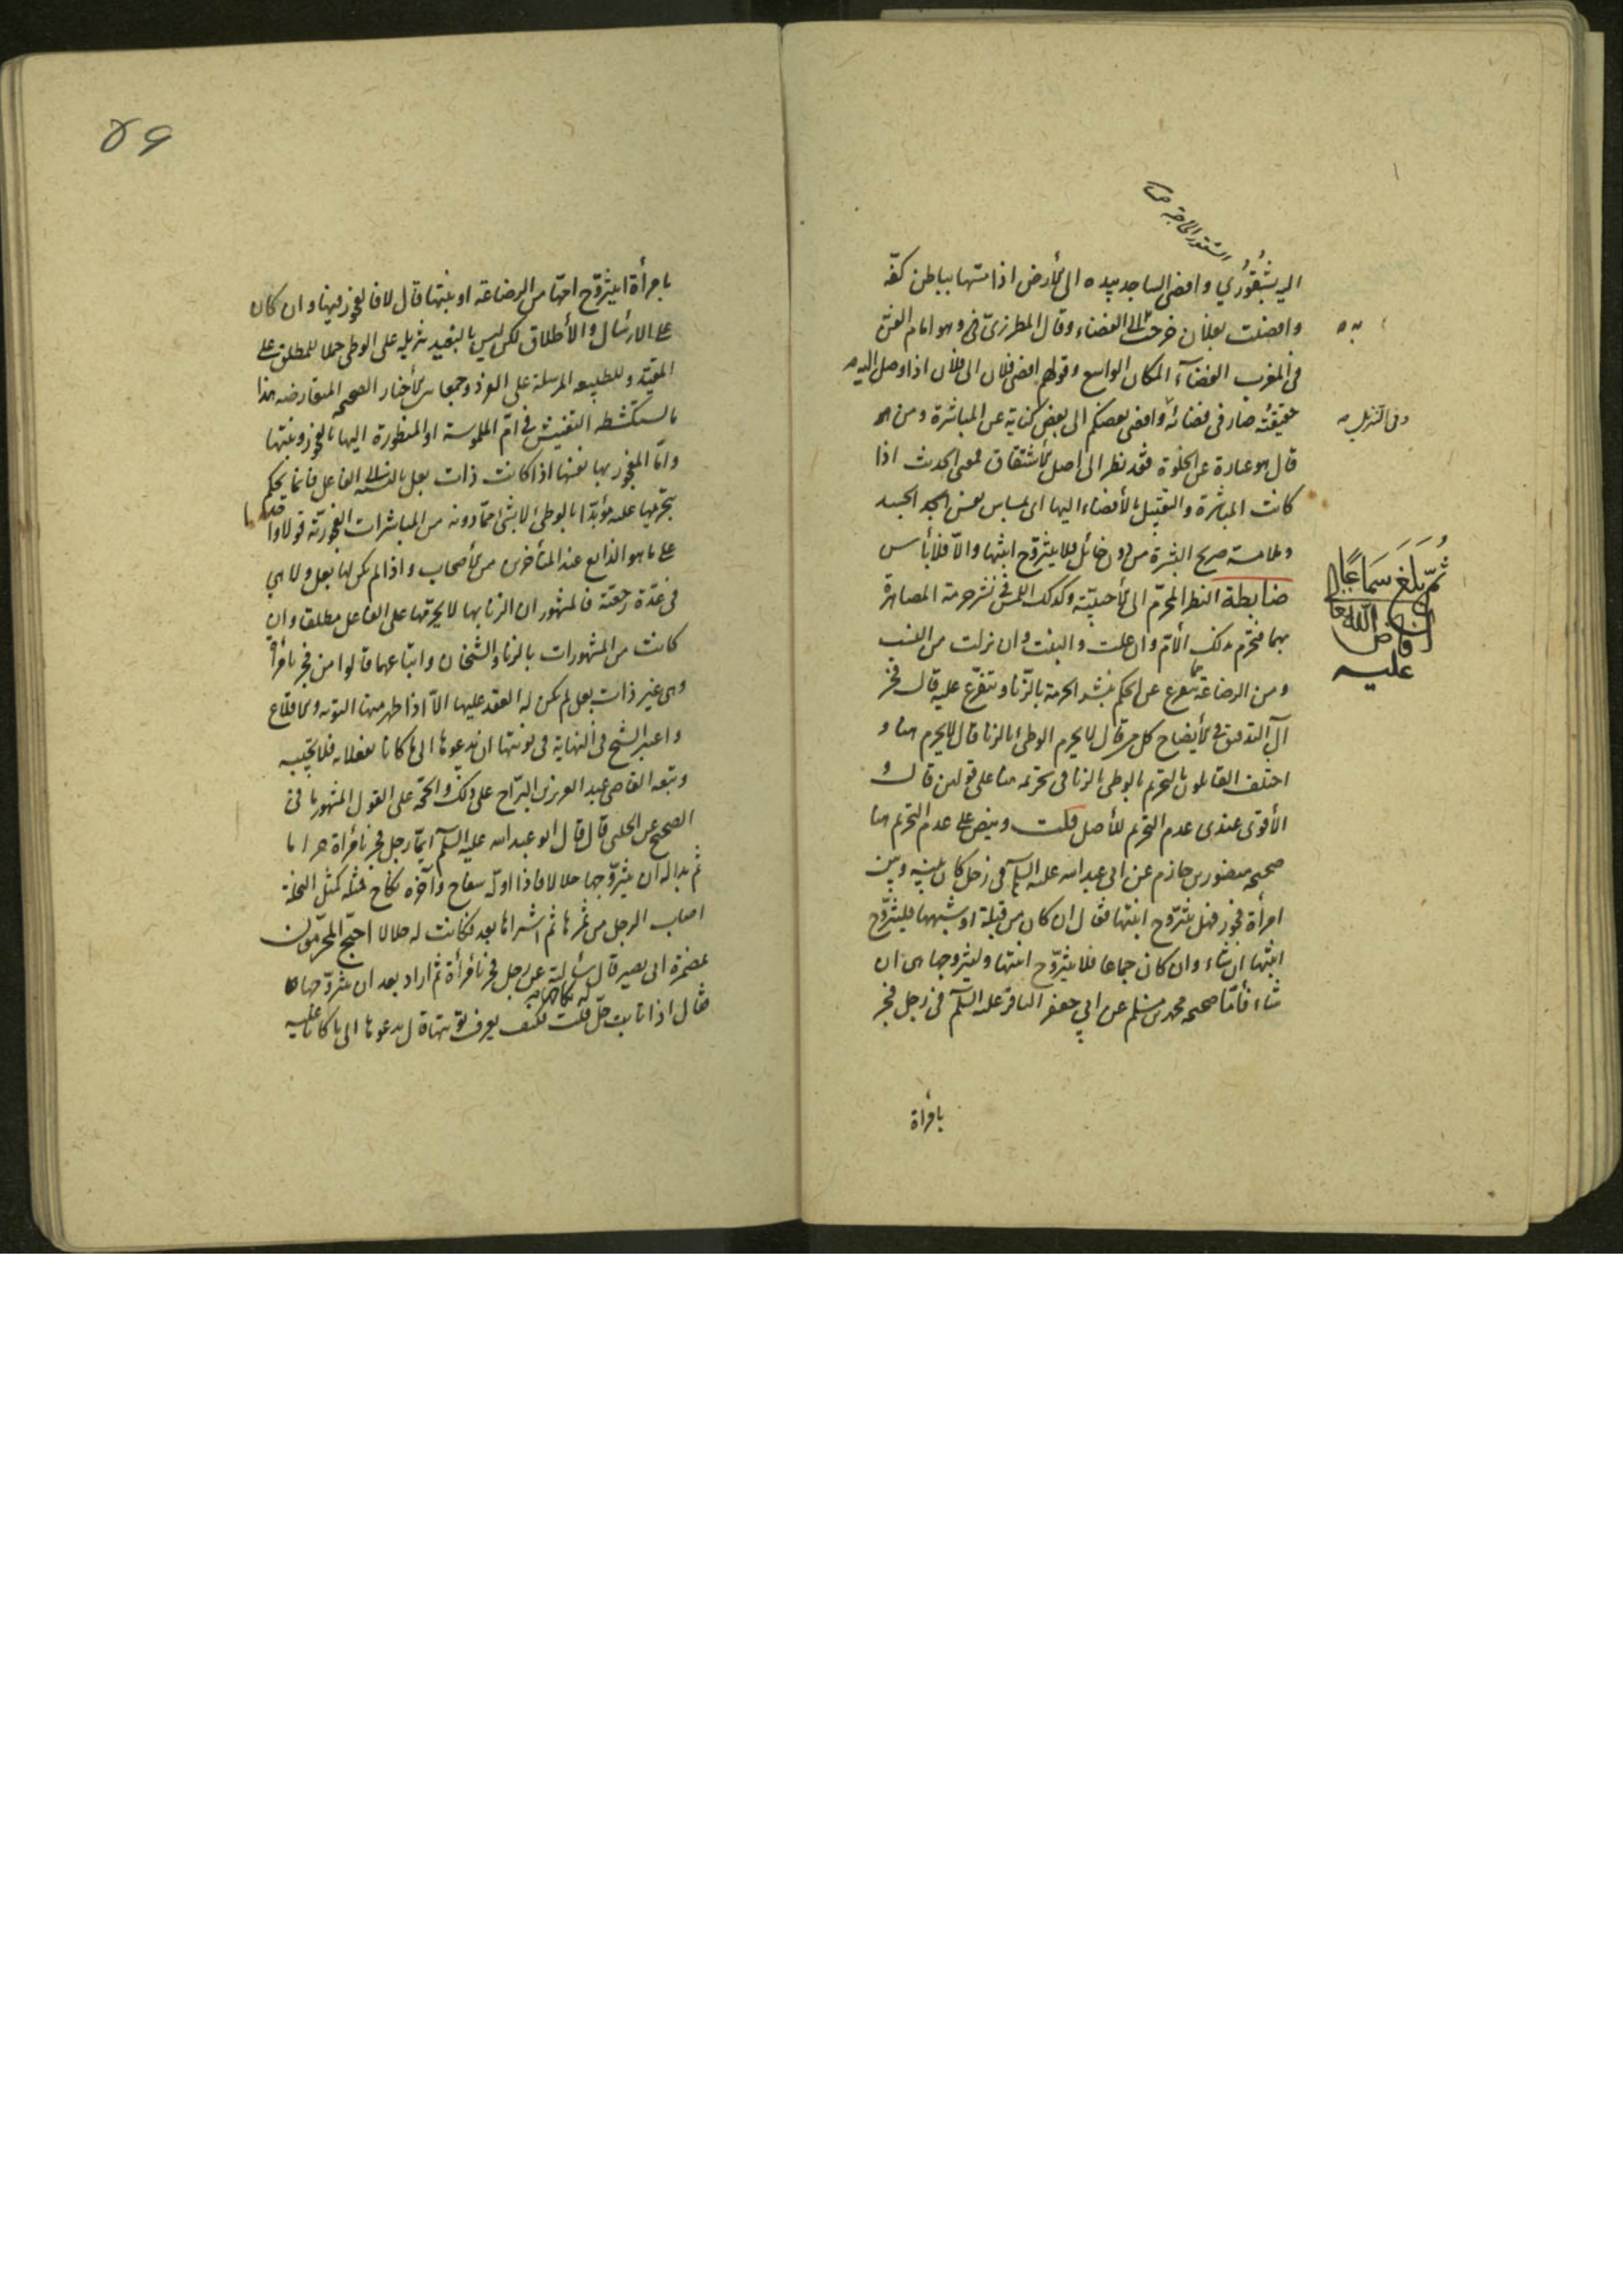 اليه بشقوري وافضى الساجد بيده الى الأرض اذا مسّها بباطن كفّه
وافضيت بفلان خرجت الى الفضاء وقال المطرزي وهو امام الفن
به
في المغرب الفضاء المكان الواسع وقولهم افضى فلان الى فلان اذا وصل اليه
حقيقته صار في فضائه وافضى بعضكم الى بعض كناية عن المباشرة ومن
وفي التنزيل
قال هو عبارة عن الخلوة فقد نظر الى اصل الأشتقاق فمعنى الحدث اذا
كانت المباشرة والتقبيل بالأفضاء اليها اي بمساس نفس الجسد الجسد
وملامسة صريح البشرة من دون حائل فلا يتزوّج ابنتها والّا فلا بأس
ثم بلغ سماعا
الله
عليه
ضابطة النظر المحرّم الى الأجنبيّة وكذلك اللمس في نشر حرمة المصاهرة
بهما فتحرم بذلك الأم وان علت والبنت وان نزلت من النسب
ومن الرضاعة يتفرع عن الحكم بنشر الحرمة بالزنا ويتفرّع عليه قال فخر
آل التدقيق في الأيضاح كل من قال لا يحرم الوطي بالزنا قال لا يحرم هنا و
اختلف القائلون بالتحريم بالوطي بالزنا في تحريمه هنا على قولين قال و
الأقوى عندي عدم التحريم للأصل قلت وينص على عدم التحريم هنا
صحيحة منصور بن حازم عن ابي عبد الله عليه السلم في رجل كان بينه وبين
امرأة فجور فهل يتزوّج ابنتها فقال ان كان من قبلة او شبهها فليتزوّج
ابنتها ان شاء وان كان جماعا فلا يتزوّج ابنتها وليتزوجها هي ان
شاء فأمّا صحيحة محمد بن مسلم عن ابي جعفر الباقر عليه السلم في رجل فجر
بامرأة
٥٩
بامرأة ايتزوّج امّها من الرضاعة او بنتها قال لا فالفجور فيها وان كان
على الارسال والأطلاق لكن ليس بالبعيد تنزيله على الوطي حملا للمطلق على
المقيّد وللطبيعة المرسلة على الفرد وجمعا بين الأخبار الصحيحة المتعارضة هذا
ما استكشطه التفتيش في امّ الملموسة او المنظورة اليها بالفجور وبنتها
وامّا المفجور بها نفسها اذا كانت ذات بعل بالنسبة الى الفاعل فانما يحكم
بتحريمها عليه مؤبّدا بالوطي لا بشئ ممّا دونه من المباشرات الفجوريّة قولا واحدا
على ما هو الذائع عند المتأخرين من الأصحاب واذا لم يكن لها بعل ولا هي
في عدّة رجعيّة فالمشهور ان الزنا بها لا يحرّمها على الفاعل مطلقا وان
كانت من المشهورات بالزنا والشيخان واتباعهما قالوا من فجر بامرأة
وهي غير ذات بعل لم يكن له العقد عليها الّا اذا ظهر منها التوبة والاقلاع
واعتبر الشيخ في النهاية في توبتها ان يدعوها الى ما كانا يفعلانه فلا تجيبه
وتبعه القاضي عبد العزيز بن البرّاج على ذلك والحجّة على القول المشهور ما في
الصحيح عن الحلبي قال قال ابو عبد الله عليه السلم ايّما رجل فجر بامرأة حراما
ثم بدا له ان يتزوّجها حلالا فاذا اوله سفاح وآخره نكاح فمثله كمثل النخلة
اصاب الرجل من ثمرها ثم اشتراها بعد فكانت له حلالا احتج المحرّمون
بمضمرة ابي بصير قال سألته عن رجل فجر بامرأة ثم اراد بعد ان يتزوّجها
فقال اذا تابت حلّ له نكاحها قلت فكيف يعرف توبتها قال يدعوها الى ما كانا عليه